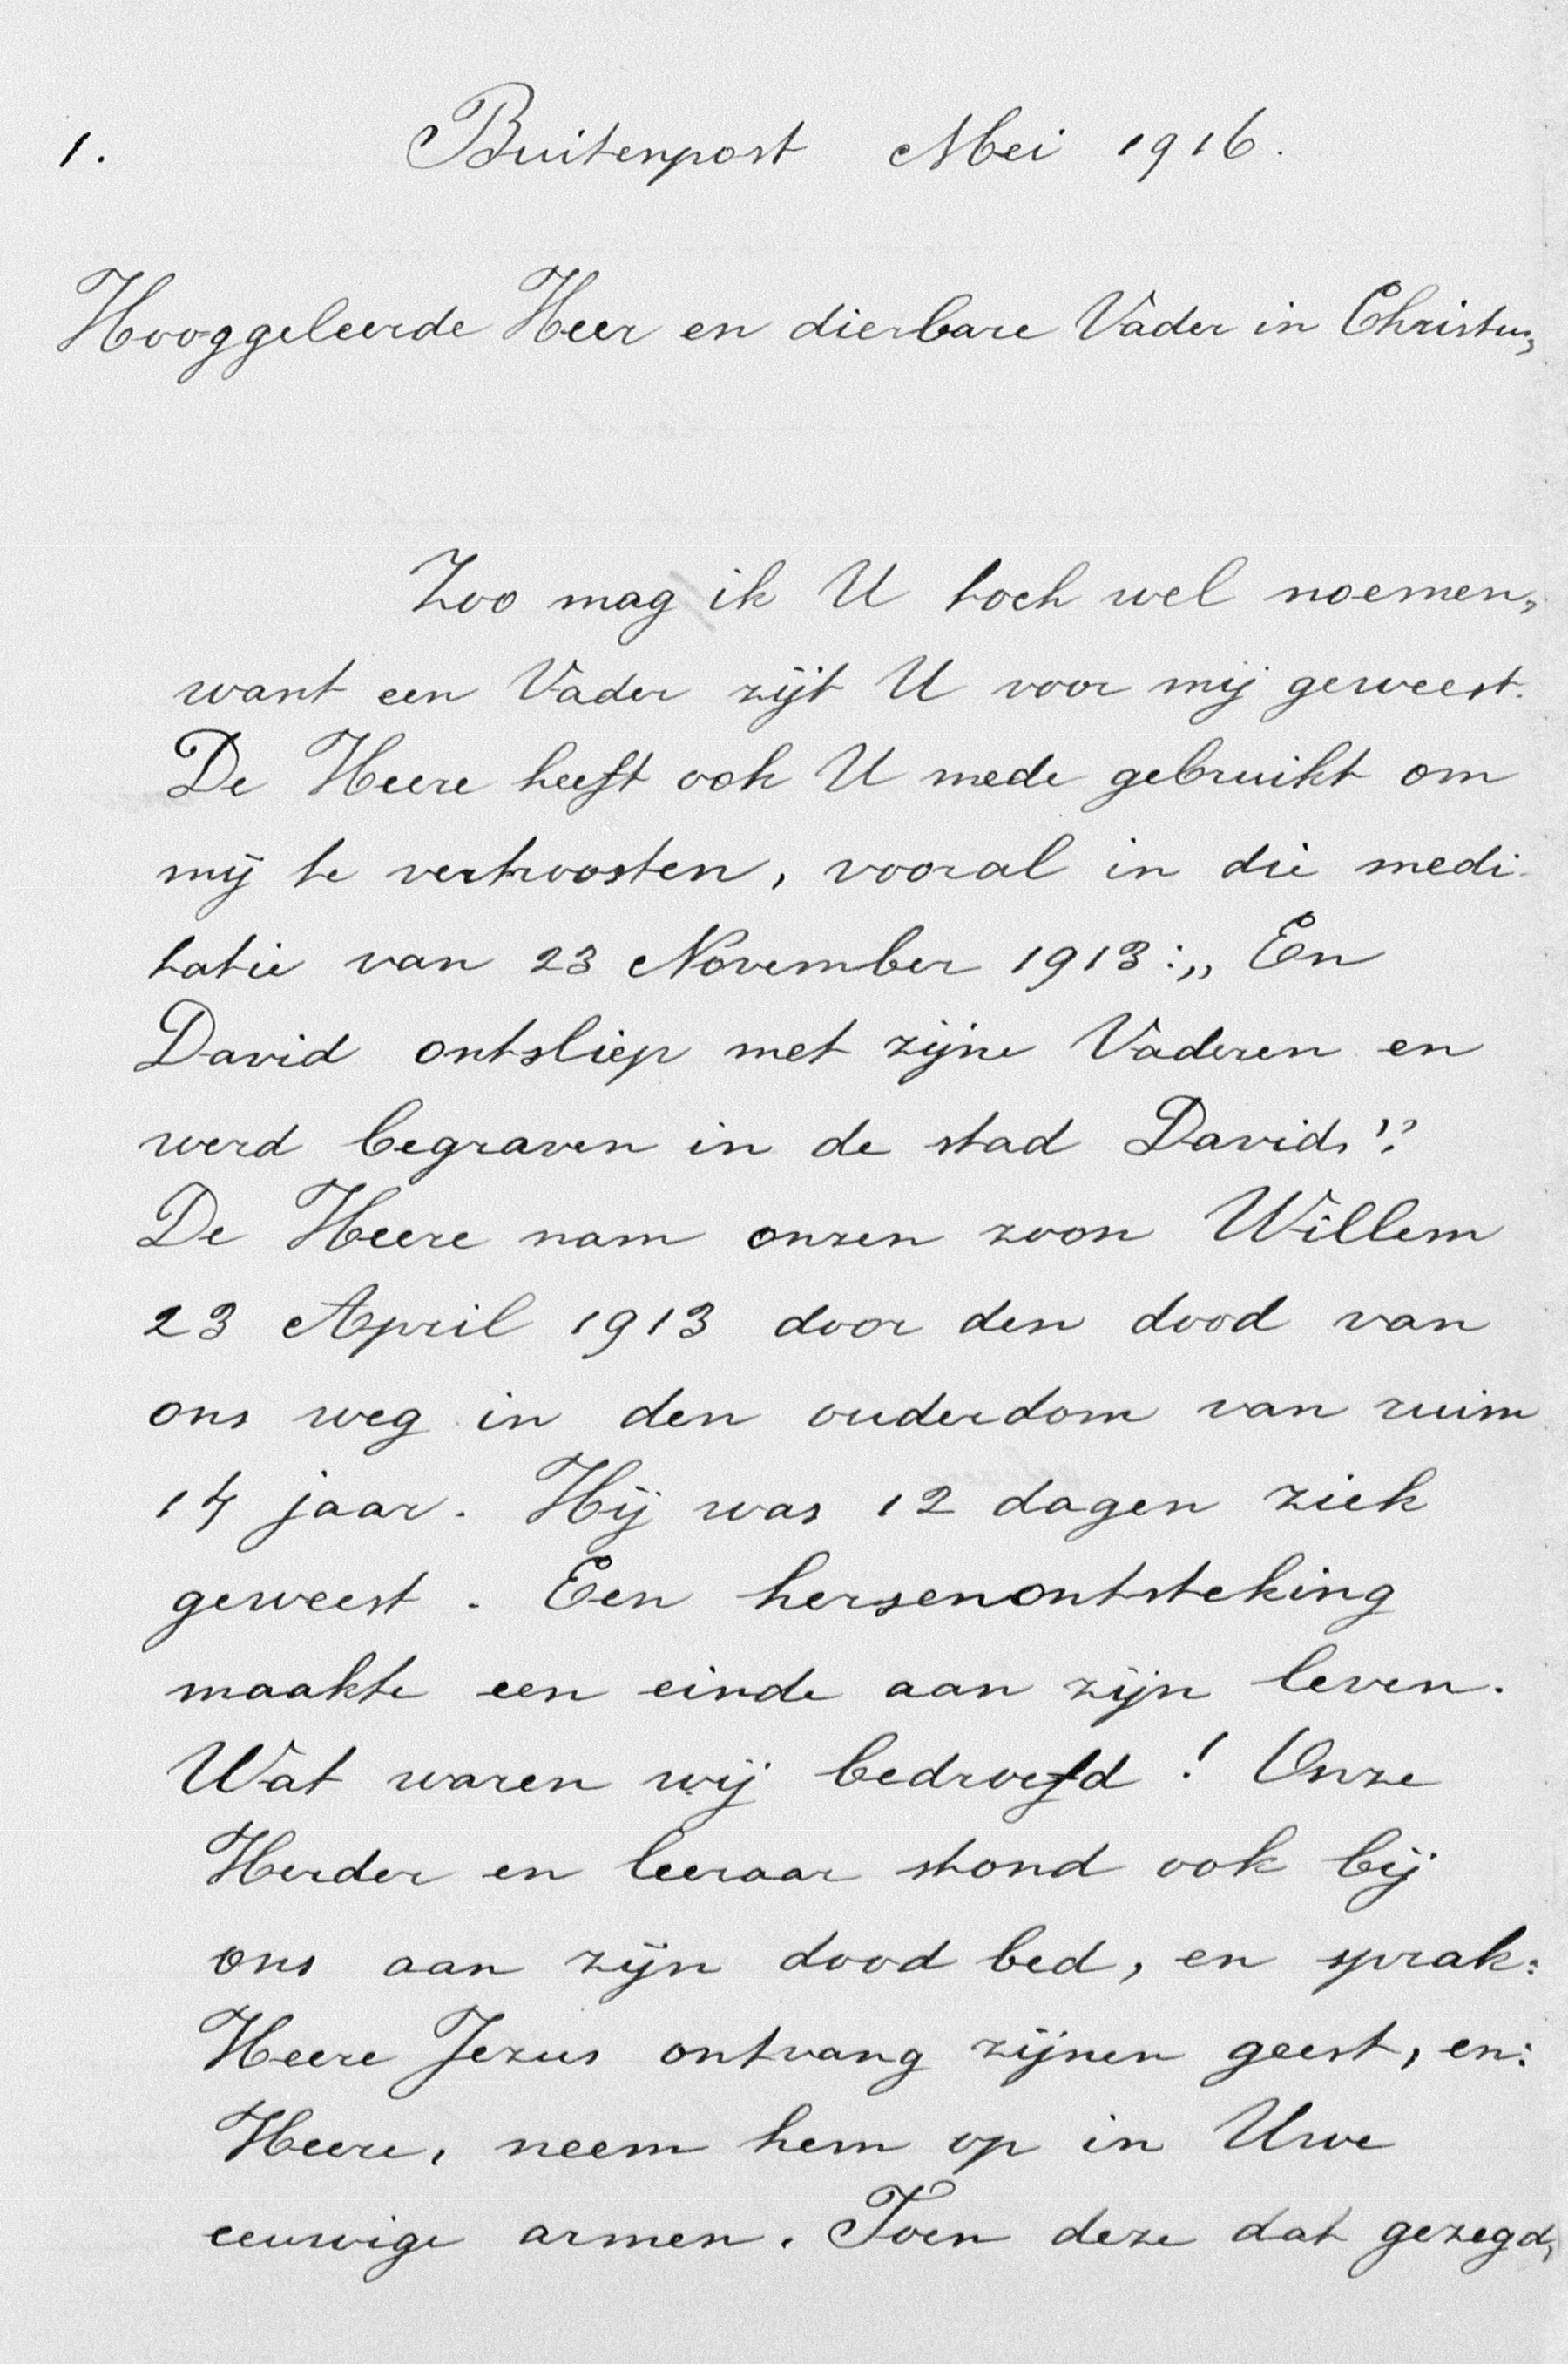 1. Buitenpost Mei 1916.
Hooggeleerde Heer en dierbare Vader in Christus,
Zoo mag ik U toch wel noemen,
want een Vader zijt U voor mij geweest.
De Heere heeft ook U mede gebruikt om
mij te vertroosten, vooral in die medi-
tatie van 23 November 1913: „En
David ontsliep met zijne Vaderen en
werd begraven in de stad Davids".
De Heere nam onzen zoon Willem
23 April 1913 door den dood van
ons weg in den ouderdom van ruim
14 jaar. Hij was 12 dagen ziek
geweest. Een hersenontsteking
maakte een einde aan zijn leven.
Wat waren wij bedroefd! Onze
Herder en leeraar stond ook bij
ons aan zijn dood bed, en sprak:
Heere Jezus ontvang zijnen geest, en:
Heere, neem hem op in Uwe
eeuwige armen. Toen deze dat gezegd,